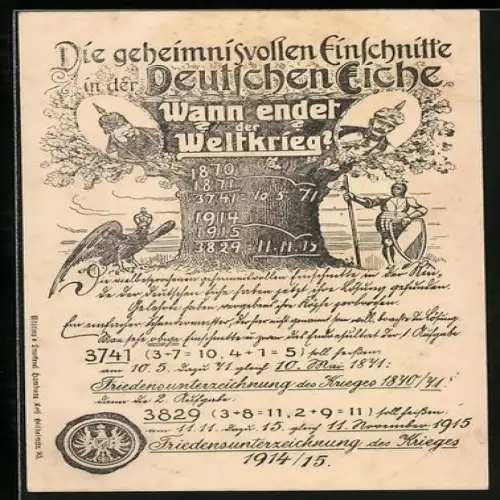 Die geheimnisvollen Einschnitte
in der Deutschen Eiche
Wann endet
der
Weltkrieg?
1870
1871
3741 = 10.5.71
1914
1915
3829 = 11.11.15
Die vielbesprochenen geheimnisvollen Einschnitte in der Rin-
de der deutschen Eiche haben jetzt ihre Lösung gefunden.
Gelehrte haben vergebens ihr Köpfe zerbrochen.
Ein einfacher der nicht genannt sein will, brachte d. Lösung
Man lese obige Einschnitte in zwar das Endresultat der 1. Aufgabe
3741 (3+7=10, 4+1=5) soll heißen:
am 10.5. dazu 71 gleich 10. Mai 1871:
Friedensunterzeichnung des Krieges 1870/71
dann die 2. Aufgabe:
3829 (3+8=11, 2+9=11) soll heißen:
am 11.11. dazu 15. gleich 11. November 1915
Friedensunterzeichnung des Krieges
1914/15.